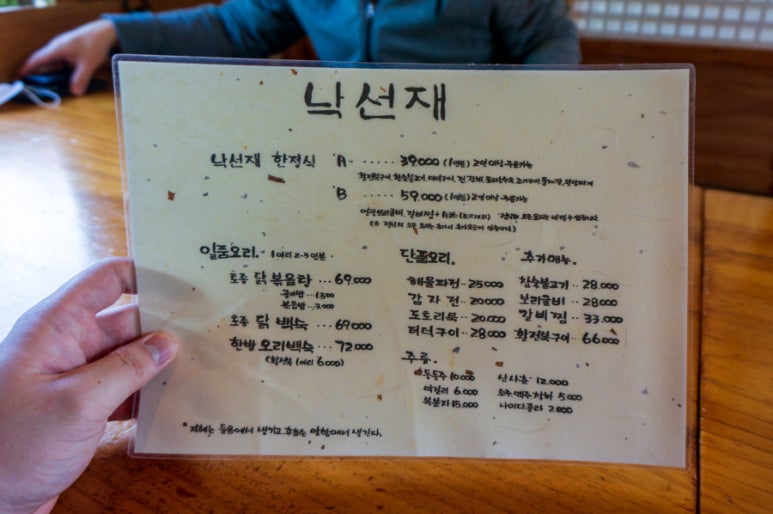 낙선재
낙선재 한정식 A ..... 39.000 (1인분) 2인 이상 주문가능
B ..... 59.000 (1인분) 2인 이상 주문가능
일품요리. 1마리 2-3인분
토종 닭볶음탕 ... 69.000
공기밥 ... 1.500
볶음밥 ... 3.000
토종 닭 백숙 ... 69.000
한방 오리백숙 ... 72.000
(활전복 1마리 6.000)
단품요리.
해물파전 .. 25.000
감자전 .. 20.000
도토리묵 .. 20.000
더덕구이 .. 28.000
추가메뉴.
참숯불고기 .. 28.000
보리굴비 .. 28.000
갈비찜 .. 33.000
활전복구이 .. 66.000
주류.
동동주 10.000
막걸리 6.000
복분자 15.000
신사춘 12.000
소주.맥주.청하 5.000
사이다.콜라 2.000
* 지혜는 들음에서 생기고 후회는 말함에서 생긴다.